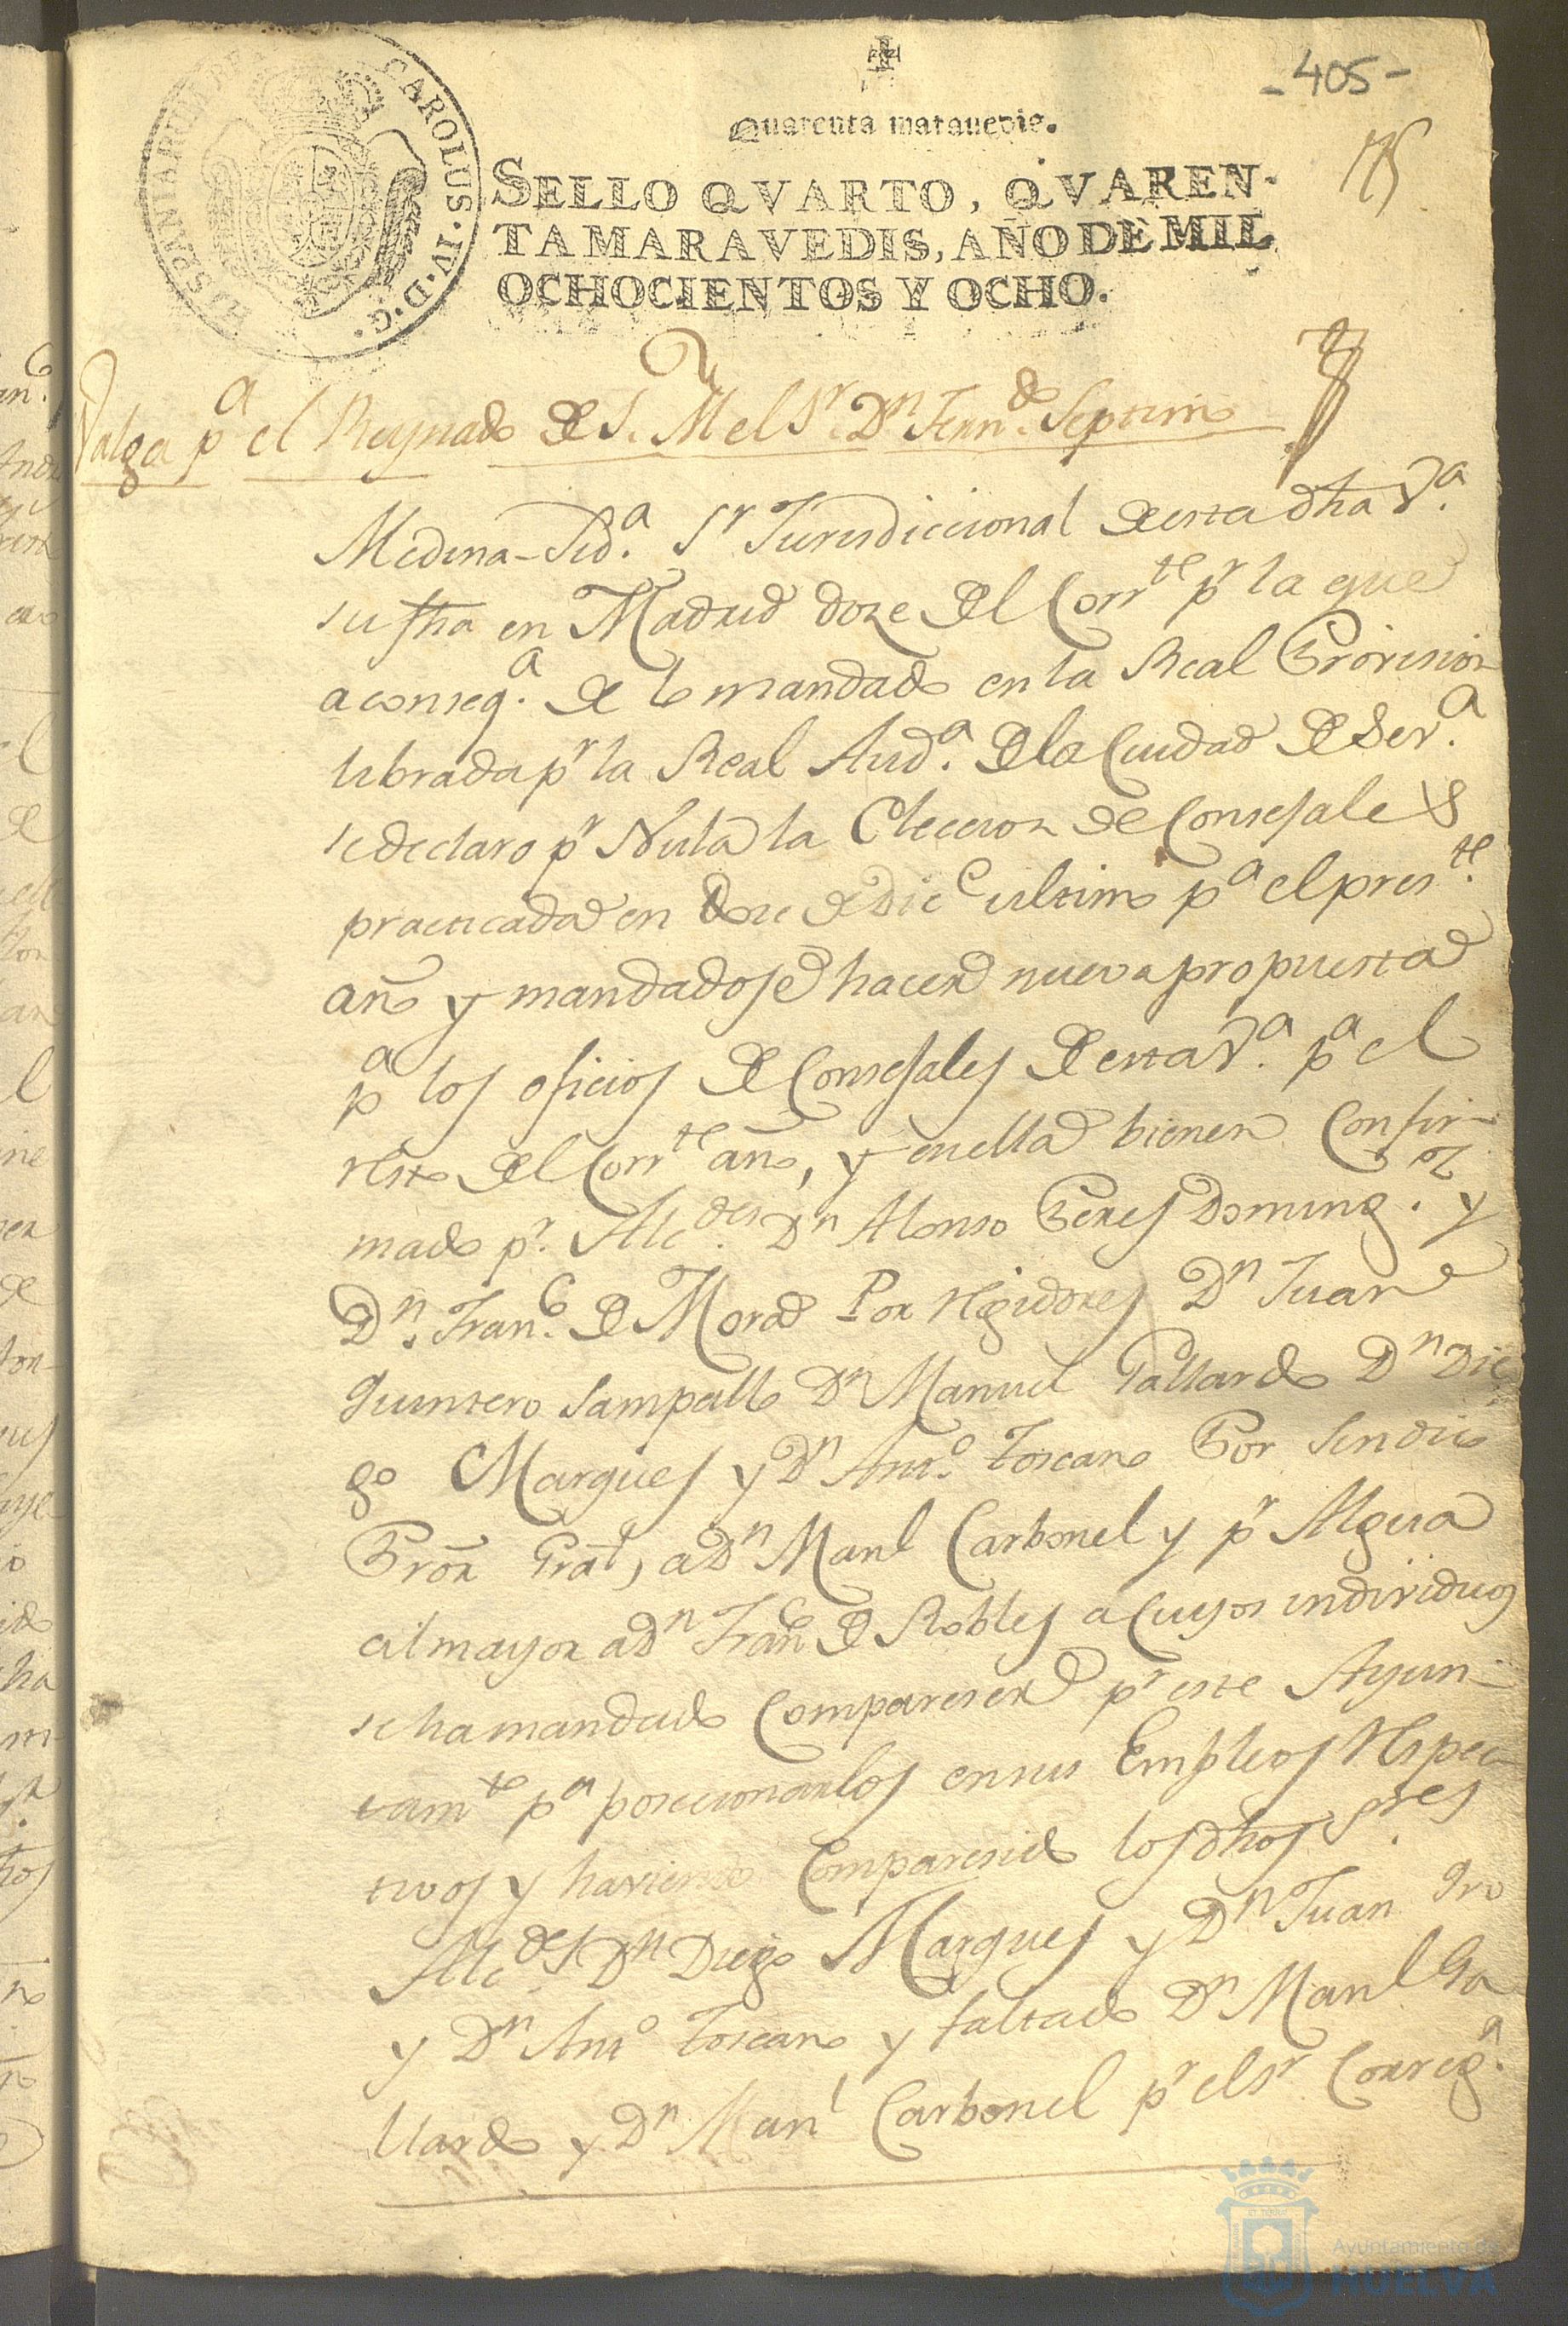 -405-
Quarenta maravedis.
175
HISPANIARUM REX CAROLUS·IV·D·G·
SELLO QVARTO, QVAREN-
TA MARAVEDIS, AÑO DE MIL
OCHOCIENTOS Y OCHO.
Valga pa el Reynado de S. M el Sr. Dn Ferndo. Septimo
Medina-Sida. Sr Jurisdiccional de esta dha Va.
su fha en Madrid doze del Corrte pr la que
a conseqa. de lo mandado en la Real Provision
librada pr la Real Auda. de la Ciudad de Seva.
se declaro pr Nula la Eleccion de Consejales
practicada en doze de Dice ultimo pa el preste.
año y mandadose hacer nueva propuesta
pa los oficios de Consejales de esta Va. pa el
resto del Corrte año, y en ella bienen Confir-
mado pr. Alcdes. Dn Alonso Peres Domingz. y
Dn. Franco. de Mora Por regidores Dn Juan
Quintero Sampallo Dn Manuel Gallardo Dn Die
go Marques y Dn Anto. Toscano Por Sindico
Pror Gral, a Dn Manl Carbonel y pr Algua
cil mayor a Dn Franco de Robles a Cuyos individuos
se ha mandado Compareser pr este Ayun-
tamto pa posecionarlos en sus Empleos respec
tivos y haviendo Comparesido los dhos Sres.
Alcdes. Dn Diego Marques y Dn Juan Qro
y Dn Anto Toscano y faltado Dn Manl Ga
llardo y Dn Manl Carbonel pr el Sr Correga.
Ayuntamiento de
HUELVA